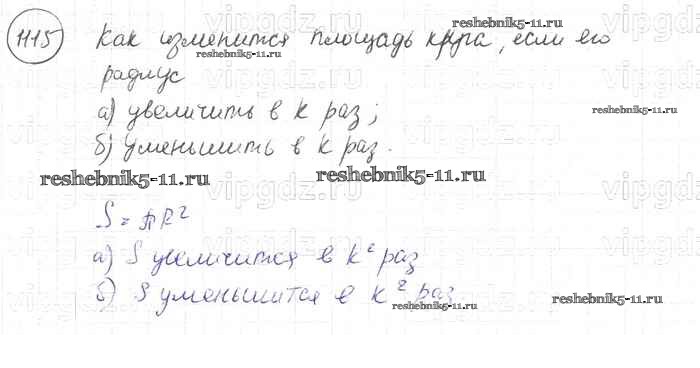 1115 Как изменится площадь круга, если его
радиус
а) увеличить в k раз;
б) уменьшить в k раз.
S = πR²
а) S увеличится в k² раз
б) S уменьшится в k² раз
reshebnik5-11.ru
reshebnik5-11.ru
reshebnik5-11.ru
reshebnik5-11.ru
reshebnik5-11.ru
reshebnik5-11.ru
reshebnik5-11.ru
vipgdz.ru
vipgdz.ru
vipgdz.ru
vipgdz.ru